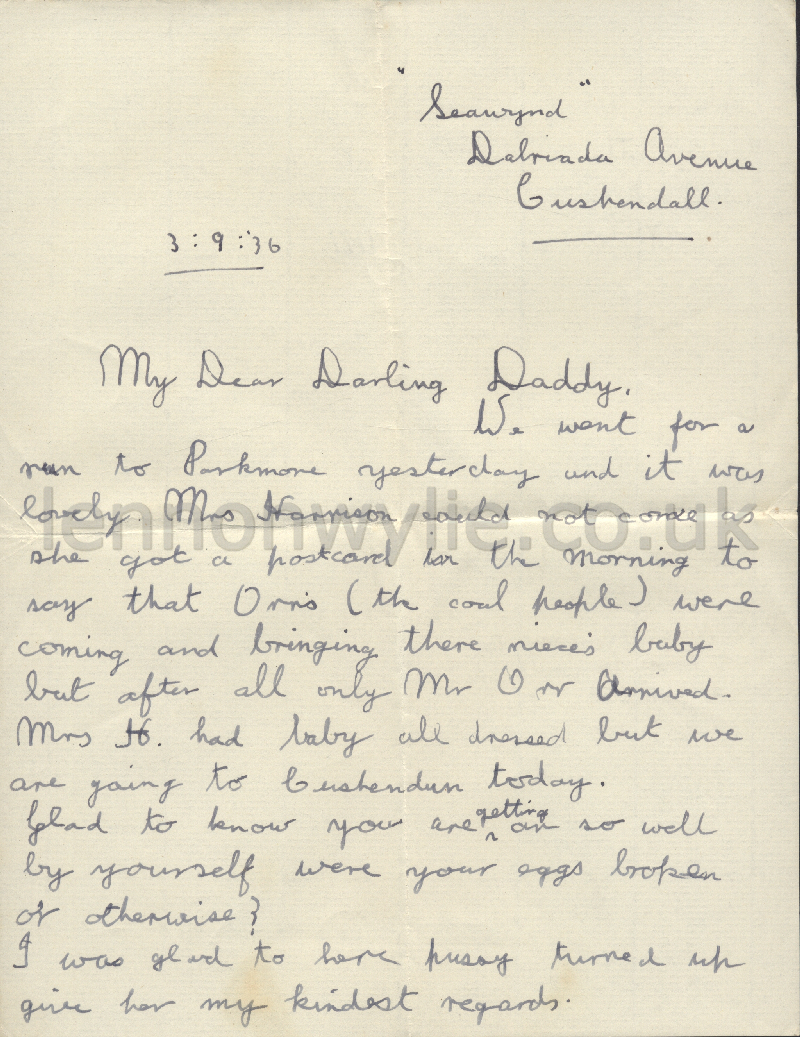 "Seawynd"
Dalriada Avenue
Cushendall.
3:9:'36
My Dear Darling Daddy,
We went for a
run to Parkmore yesterday and it was
lovely. Mrs Harrison could not come as
she got a postcard in the morning to
say that Orrs (the coal people) were
coming and bringing there niece's baby
but after all only Mr Orr Arrived.
Mrs H. had baby all dressed but we
are going to Cushendun today.
Glad to know you are getting on so well
by yourself were your eggs broken
or otherwise?
I was glad to here pussy turned up
give her my kindest regards.
lennonwylie.co.uk